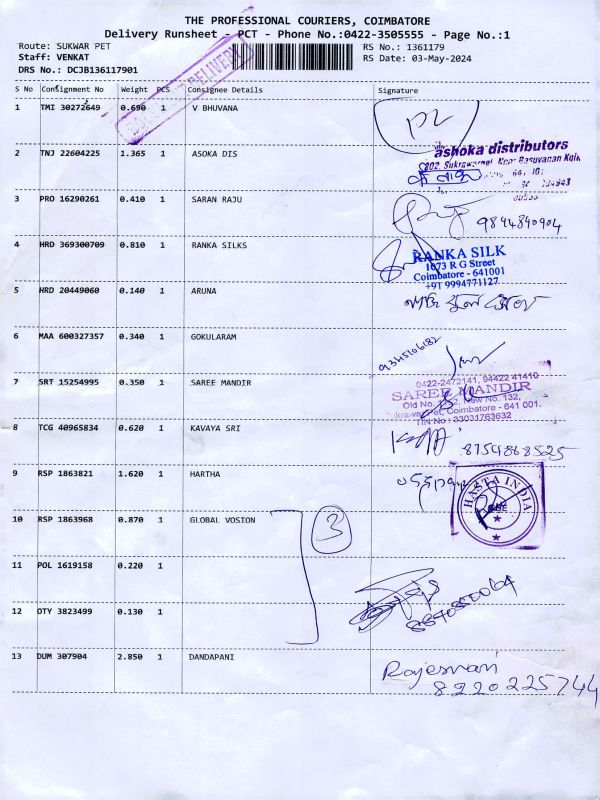 THE PROFESSIONAL COURIERS, COIMBATORE
Delivery Runsheet - PCT - Phone No.:0422-3505555 - Page No.:1
Route: SUKWAR PET RS No.: 1361179
Staff: VENKAT RS Date: 03-May-2024
DRS No.: DCJB136117901
S No Consignment No Weight PCS Consignee Details Signature
1 TMI 30272649 0.690 1 V BHUVANA
2 TNJ 22604225 1.365 1 ASOKA DIS
ashoka distributors
3 PRO 16290261 0.410 1 SARAN RAJU
9844840904
4 HRD 369300709 0.810 1 RANKA SILKS
RANKA SILK
1073 R G Street
Coimbatore - 641001
+91 9994771127
5 HRD 20449060 0.140 1 ARUNA
6 MAA 600327357 0.340 1 GOKULARAM
7 SRT 15254995 0.350 1 SAREE MANDIR
0422-2472141, 94422 41410
SAREE MANDIR
Coimbatore - 641 001.
TIN No : 33031763632
8 TCG 40965834 0.620 1 KAVAYA SRI
8754868525
9 RSP 1863821 1.620 1 HARTHA
HASTA INDIA
10 RSP 1863968 0.870 1 GLOBAL VOSION
3
11 POL 1619158 0.220 1
12 OTY 3823499 0.130 1
13 DUM 307904 2.850 1 DANDAPANI
8220225744